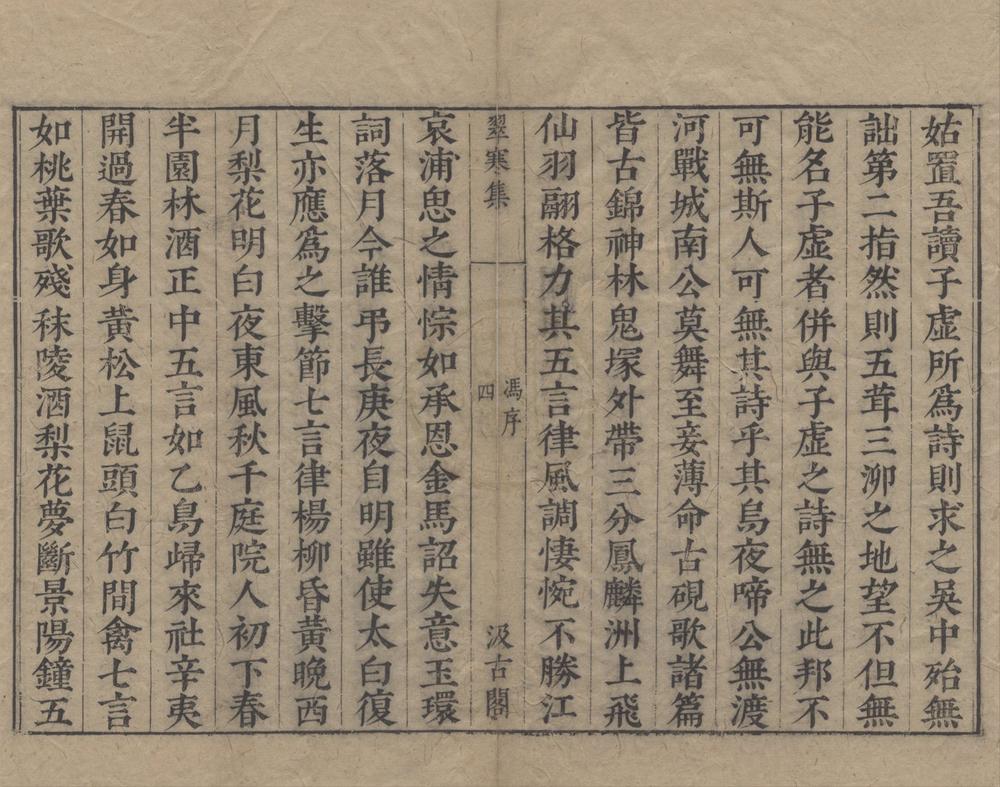 姑置吾讀子虛所爲詩則求之吳中殆無
詘第二指然則五茸三泖之地望不但無
能名子虛者併與子虛之詩無之此邦不
可無斯人可無其詩乎其烏夜啼公無渡
河戰城南公莫舞至妾薄命古硯歌諸篇
皆古錦神林鬼塚外帶三分鳳麟洲上飛
仙羽翮格力其五言律風調悽惋不勝江
翠寒集
馮序
四
汲古閣
哀浦思之情悰如承恩金馬詔失意玉環
詞落月今誰弔長庚夜自明雖使太白復
生亦應爲之擊節七言律楊柳昏黃晚西
月梨花明白夜東風秋千庭院人初下春
半園林酒正中五言如乙鳥歸來社辛夷
開過春如身黃松上鼠頭白竹間禽七言
如桃葉歌殘秣陵酒梨花夢斷景陽鐘五